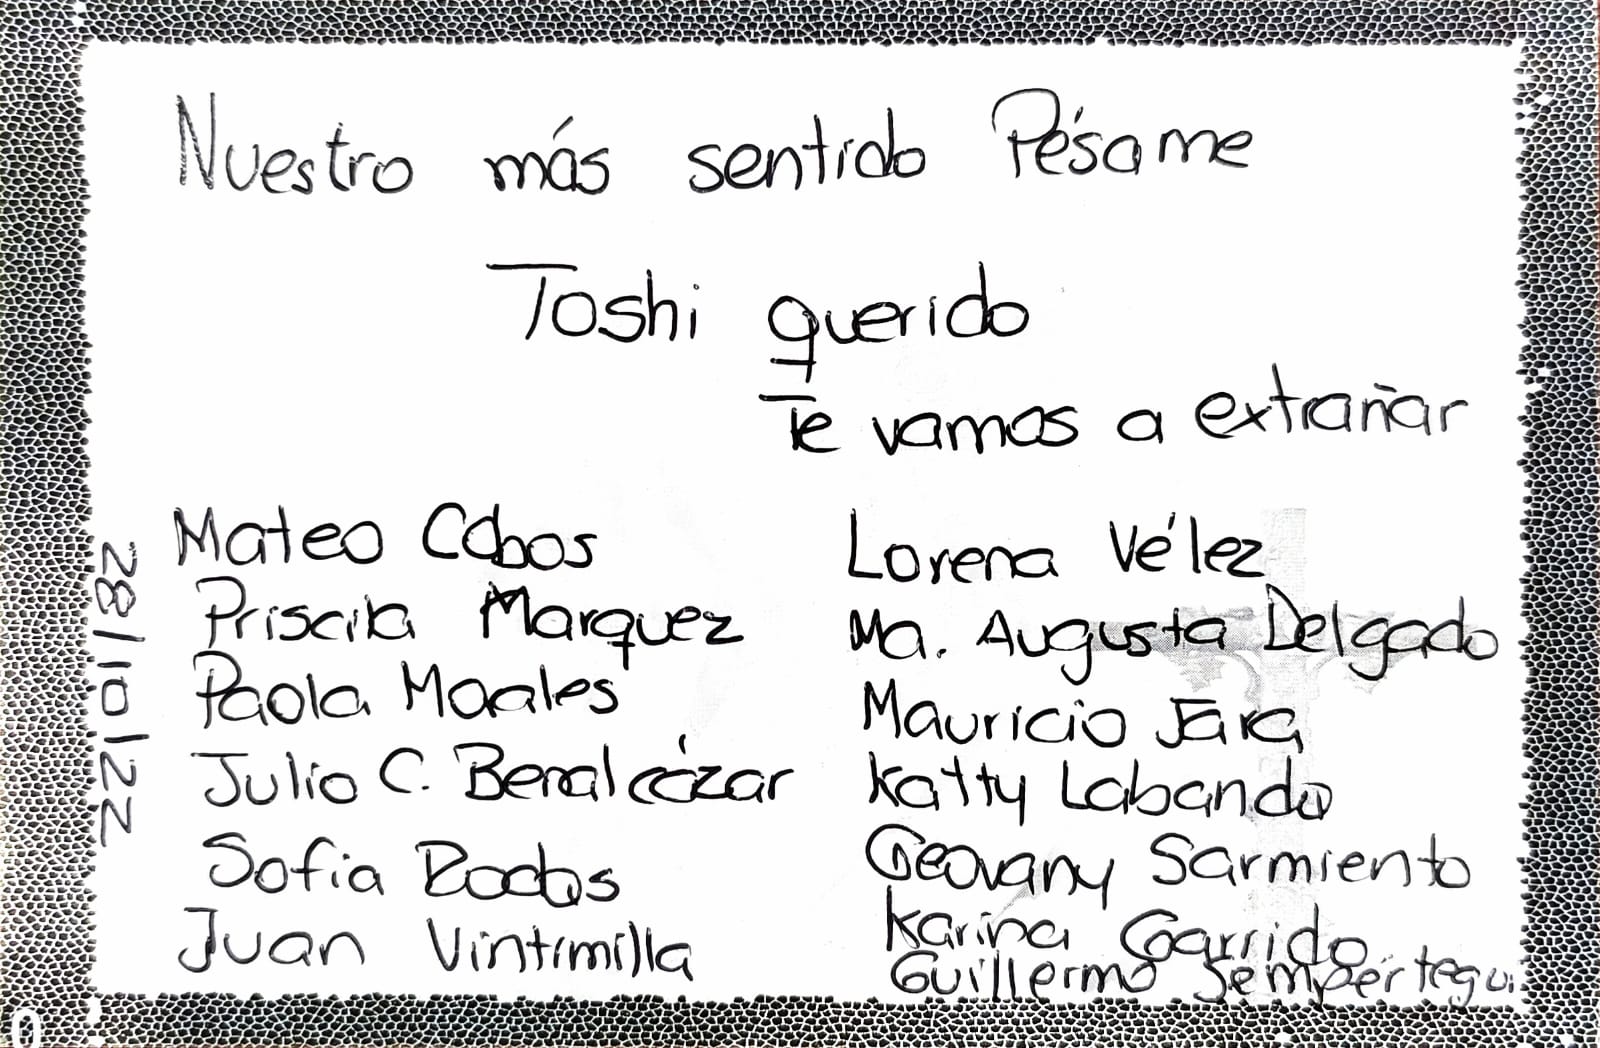 Nuestro más sentido Pésame
Toshi querido
Te vamos a extrañar
Mateo Cobos
Priscila Marquez
Paola Morales
Julio C. Benalcázar
Sofia
Juan Vintimilla
Lorena Vélez
Ma. Augusta Delgado
Mauricio Jara
Katty Labanda
Geovany Sarmiento
Karina Garrido
Guillermo Sempértegui
28/10/22